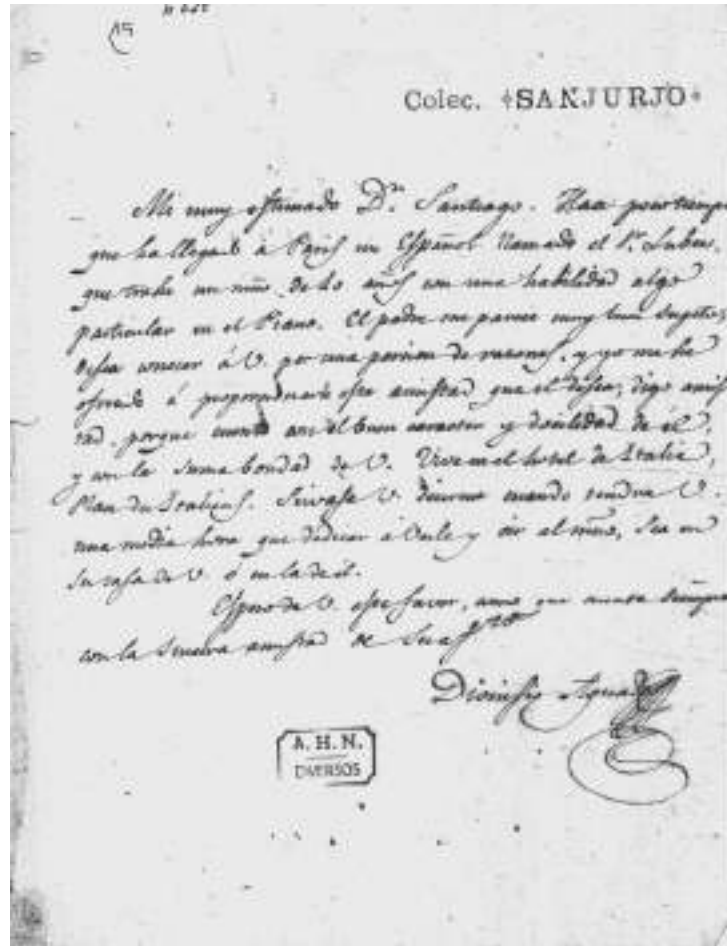 15
Colec. SANJURJO
Mi muy estimado Dn. Santiago. Hace poco tiempo
que ha llegado à Paris un Español llamado el Sr.
que trahe un niño de 10 años con una habilidad algo
particular en el Piano. El padre me parece muy buen sugeto;
desea conocer á V. por una porcion de razones, y yo me he
ofrecido á proporcionarle esta amistad que el desea; digo amis
tad, porque cuento con el buen caracter y docilidad de él,
y con la suma bondad de V. Vive en el hotel de Italie,
Place des Italiens. Sirvase V. decirme cuando tendra V.
una media hora que dedicar á verle y oir al niño, sea en
su casa de V. ó en la de él.
Espero de V. este favor, como que cuenta siempre
con la sincera amistad de su afmo
Dionisio Aguado
A. H. N.
DIVERSOS